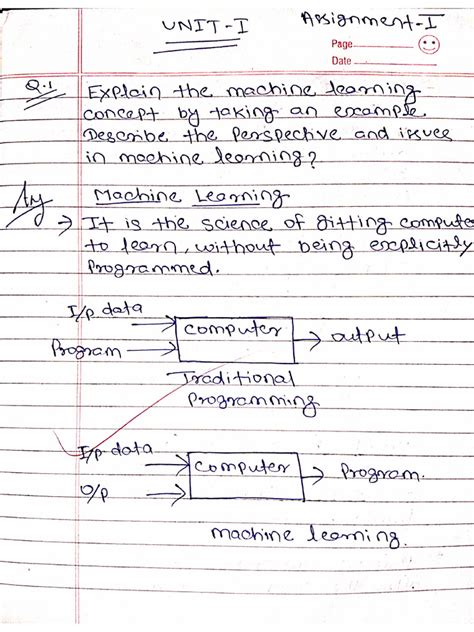 UNIT-I
Assignment-I
Page
Date
Q.1 Explain the machine learning
concept by taking an example.
Describe the Perspective and issues
in machine learning?
Machine Learning
→ It is the science of gitting compute
to learn, without being explicitly
Programmed.
I/p data
Program → computer → output
Traditional
Programming
I/p data
O/p → computer → Program.
machine learning.